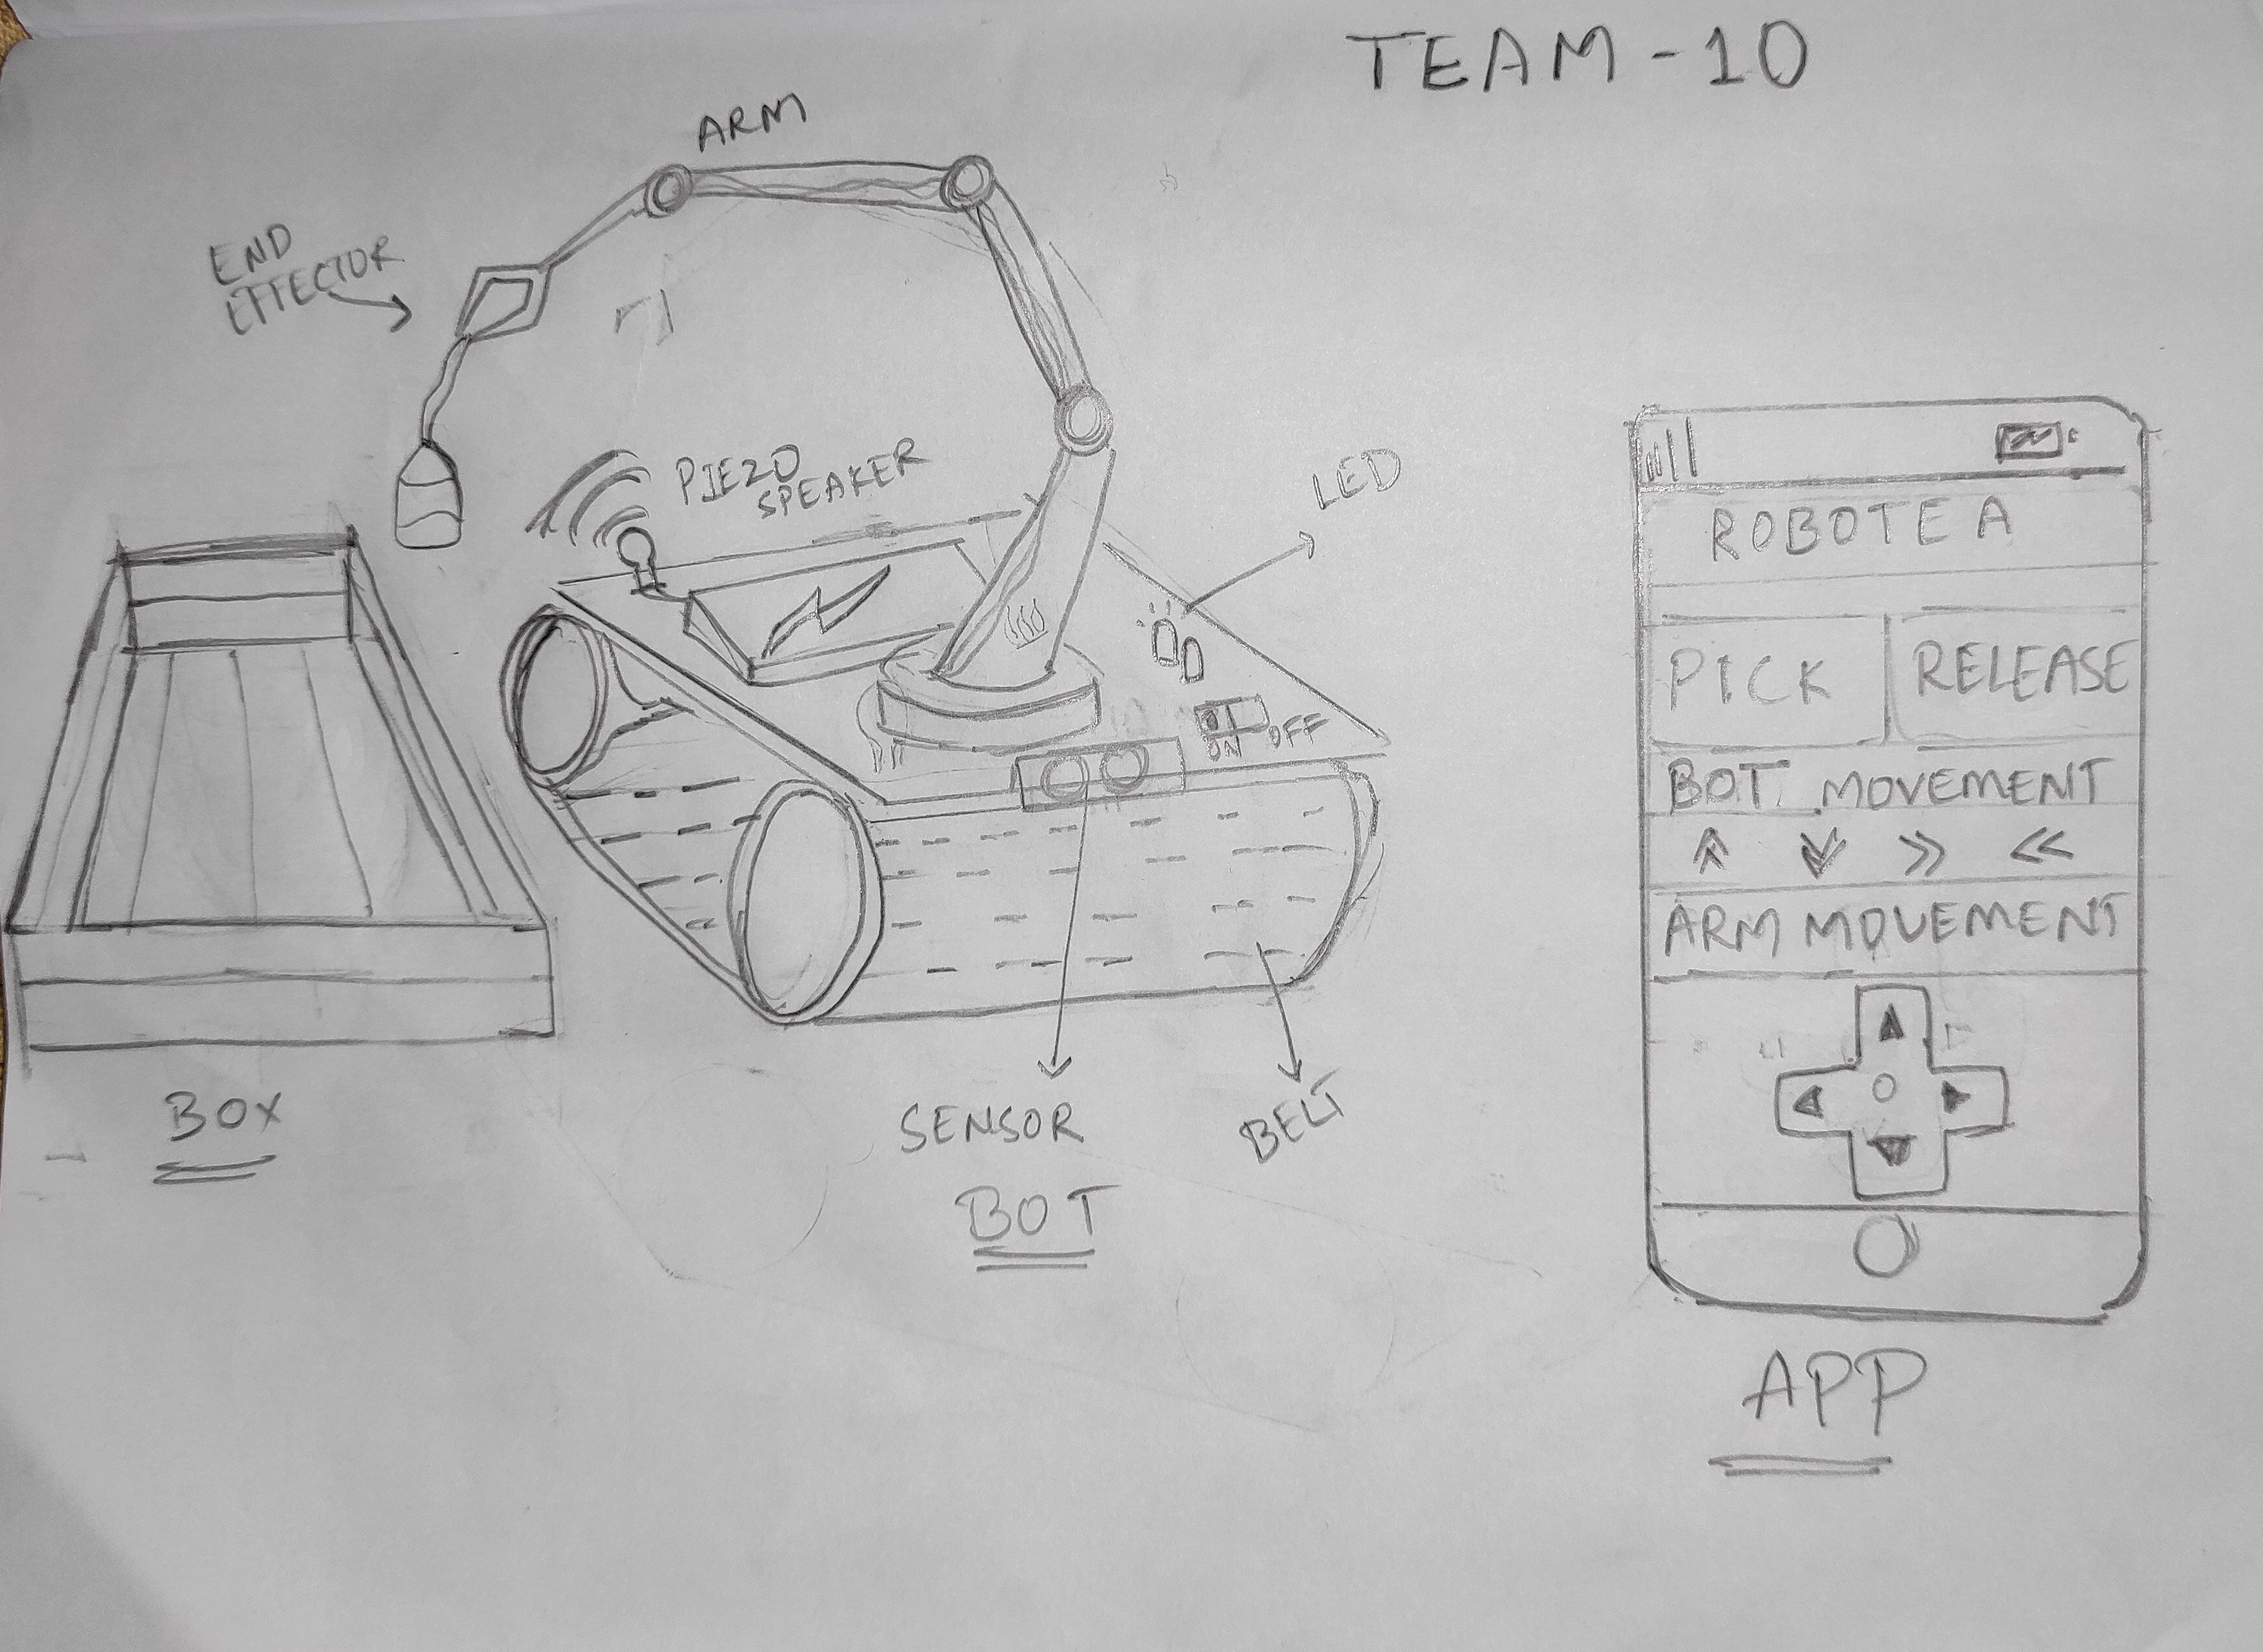 TEAM - 10
ARM
END
EFFECTOR
PIEZO
SPEAKER
LED
ON OFF
SENSOR
BELT
BOX
BOT
ROBOTE A
PICK RELEASE
BOT MOVEMENT
ARM MOVEMENT
APP